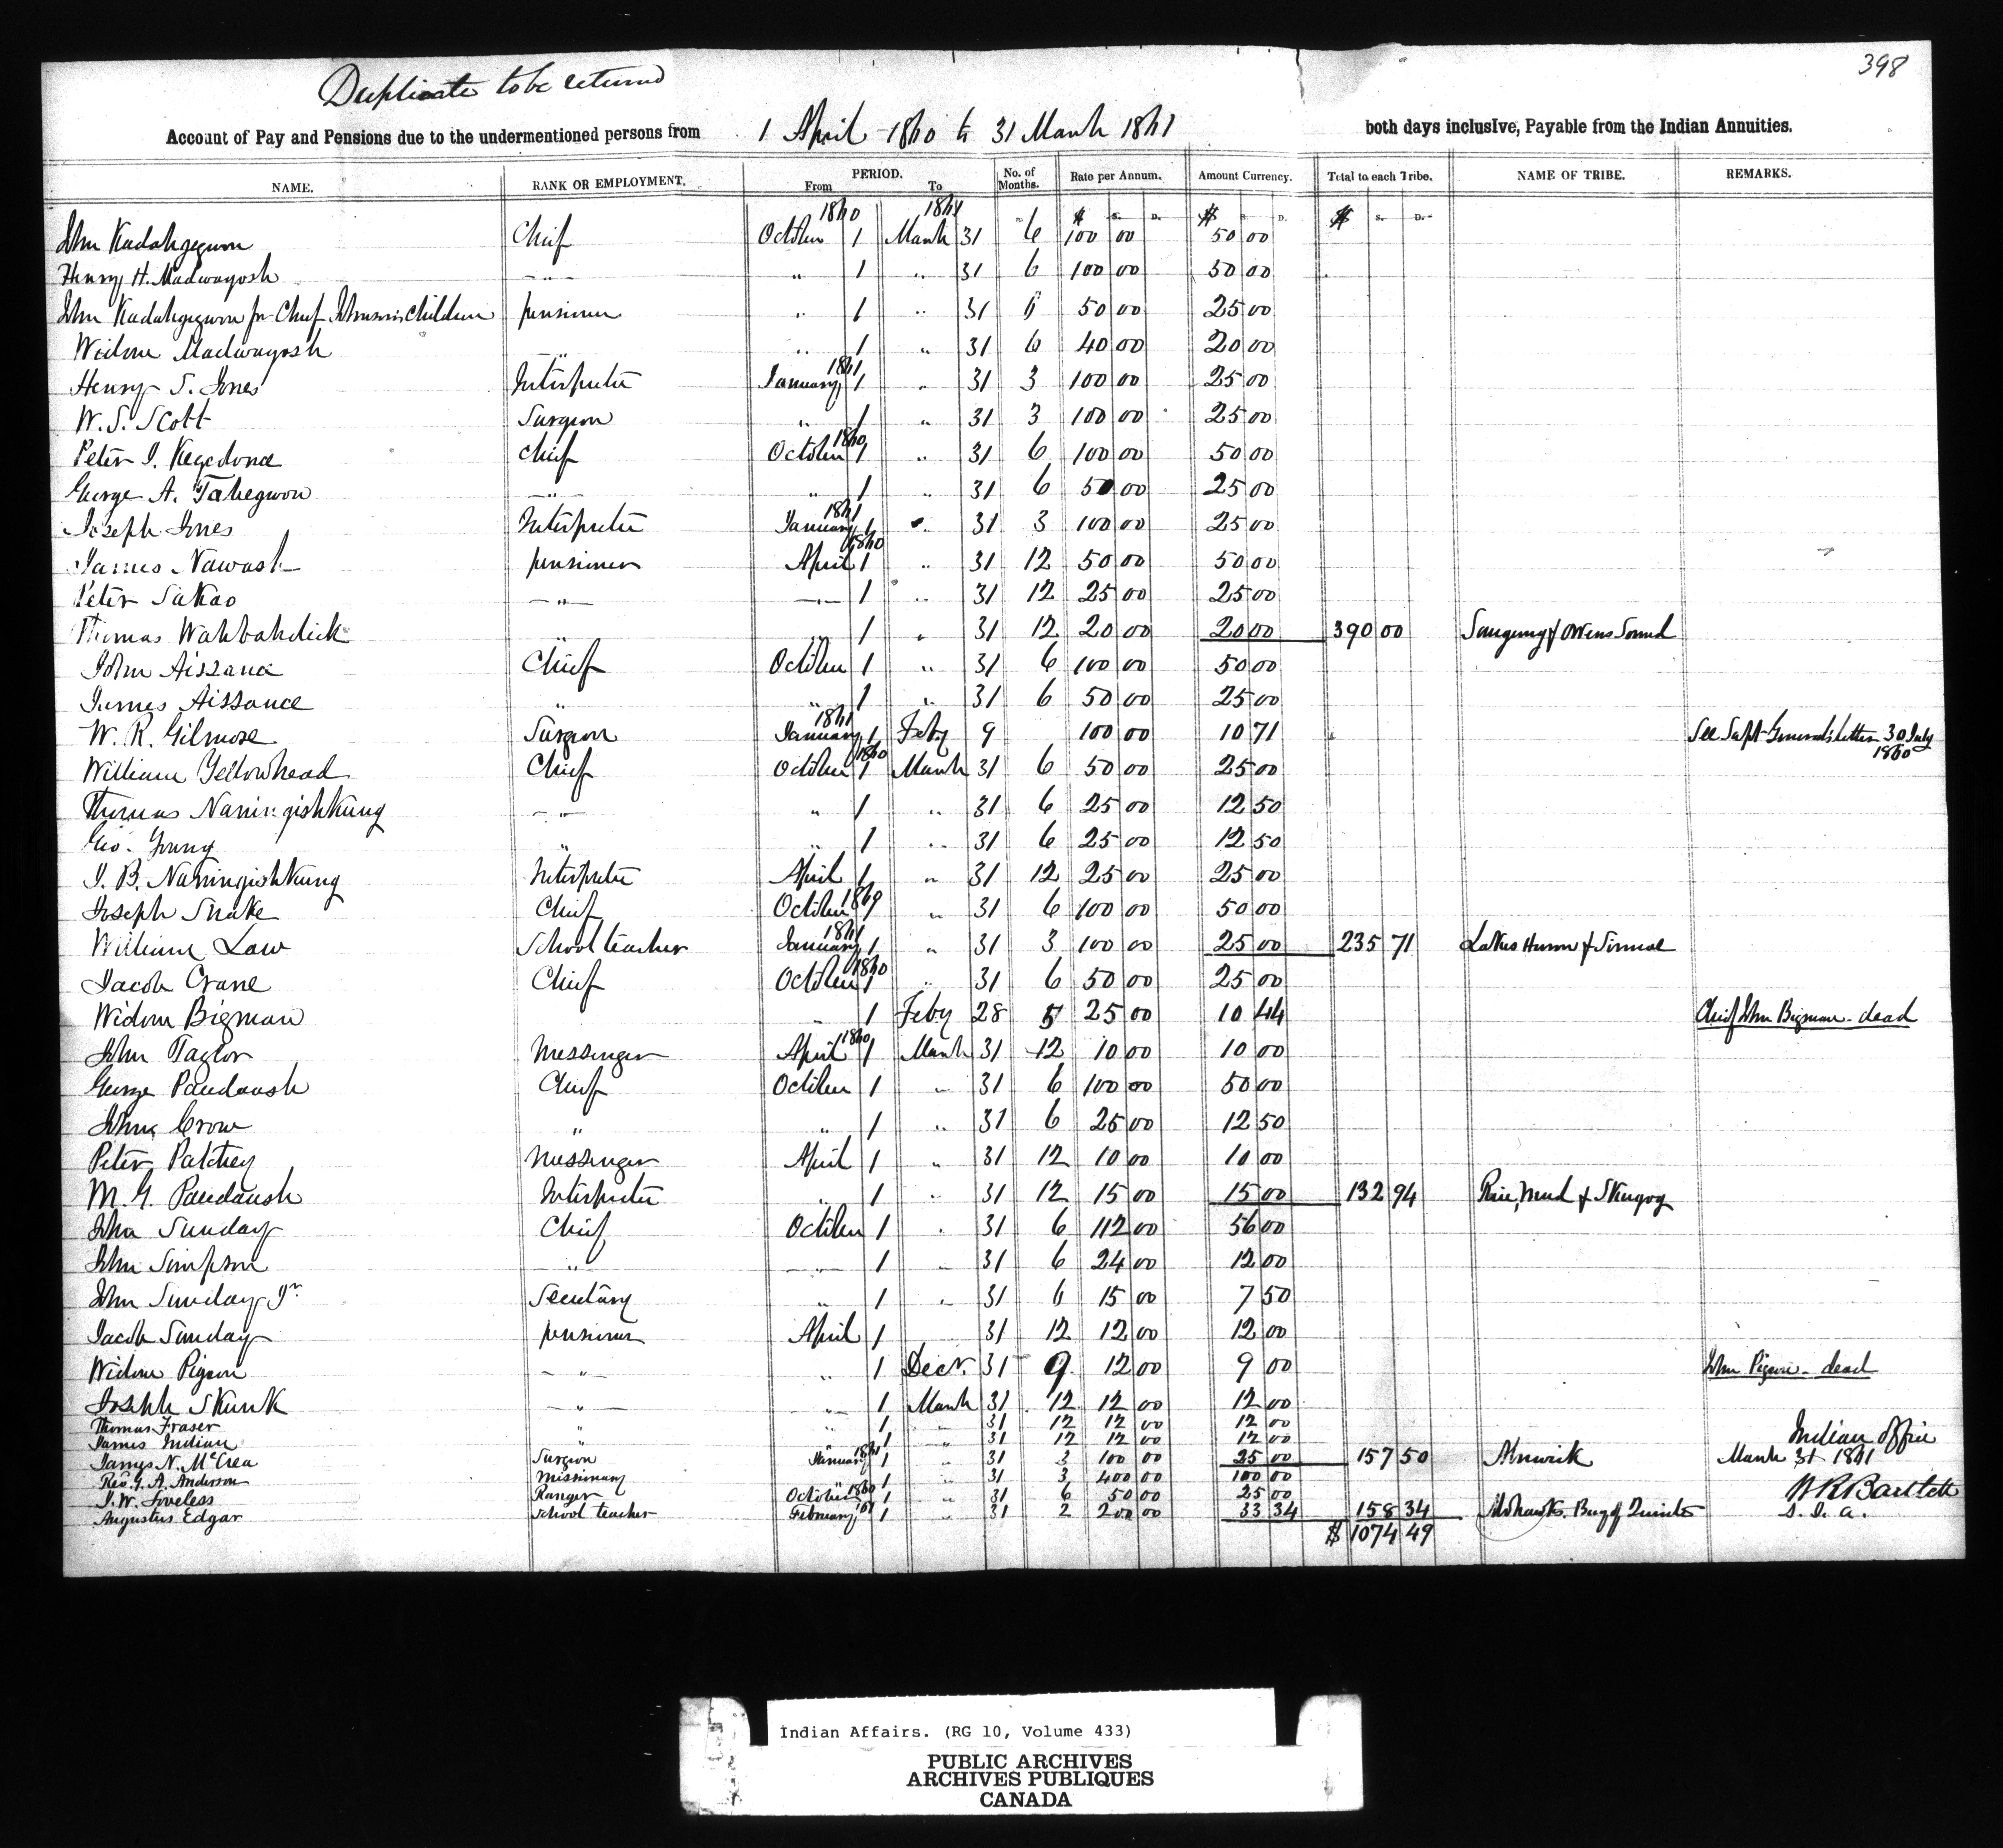 398
Duplicate to be returned
Account of Pay and Pensions due to the undermentioned persons from 1 April 1860 to 31 March 1861 both days inclusive, Payable from the Indian Annuities.
NAME. RANK OR EMPLOYMENT. PERIOD. From To No. of Months. Rate per Annum. Amount Currency. Total to each Tribe. NAME OF TRIBE. REMARKS.
1860 1861 $ S. D. $ S. D. $ S. D.
John Kadahgegwon Chief October 1 March 31 6 100 00 50 00
Henry H. Madwayosh —"— " 1 " 31 6 100 00 50 00
John Kadahgegwon for Chief Johnson's Children pensioner " 1 " 31 6 50 00 25 00
Widow Madwayosh —"— " 1 " 31 6 40 00 20 00
Henry S. Jones Interpreter January 1861 1 " 31 3 100 00 25 00
W. S. Scott Surgeon " 1 " 31 3 100 00 25 00
Peter J. Kegedonce Chief October 1860 1 " 31 6 100 00 50 00
George A. Tabegwon —"— " 1 " 31 6 50 00 25 00
Joseph Jones Interpreter January 1861 1 " 31 3 100 00 25 00
James Nawash pensioner April 1860 1 " 31 12 50 00 50 00
Peter Sakao —"— —"— 1 " 31 12 25 00 25 00
Thomas Wahbahdick " " 1 " 31 12 20 00 20 00 390 00 Saugeeng & Owens Sound
John Aissance Chief October 1 " 31 6 100 00 50 00
James Aissance " " 1 " 31 6 50 00 25 00
W. R. Gilmore Surgeon January 1861 1 Feby 9 100 00 10 71 See Supt Generals Letter 30 July 1860
William Yellowhead Chief October 1860 1 March 31 6 50 00 25 00
Thomas Naningishkung —"— " 1 " 31 6 25 00 12 50
Geo. Young " " 1 " 31 6 25 00 12 50
J. B. Naningishkung Interpreter April 1 " 31 12 25 00 25 00
Joseph Snake Chief October 1860 1 " 31 6 100 00 50 00
William Law School teacher January 1861 1 " 31 3 100 00 25 00 235 71 Lakes Huron & Simcoe
Jacob Crane Chief October 1860 1 " 31 6 50 00 25 00
Widow Bigman " 1 Feby 28 5 25 00 10 44 Chief John Bigman - dead
John Taylor Messenger April 1860 1 March 31 12 10 00 10 00
George Paudaush Chief October 1 " 31 6 100 00 50 00
John Crow " " 1 " 31 6 25 00 12 50
Peter Patchey Messenger April 1 " 31 12 10 00 10 00
M. G. Paudaush Interpreter " 1 " 31 12 15 00 15 00 132 94 Rice, Mud & Skugog
John Sunday Chief October 1 " 31 6 112 00 56 00
John Simpson —"— —"— 1 " 31 6 24 00 12 00
John Sunday Jr. Secretary " 1 " 31 6 15 00 7 50
Jacob Sunday pensioner April 1 31 12 12 00 12 00
Widow Pigeon —"— " 1 Decr. 31 9 12 00 9 00 John Pigeon - dead
Joseph Skunk —"— " 1 March 31 12 12 00 12 00
Thomas Fraser " " 1 " 31 12 12 00 12 00
James Indian " " 1 " 31 12 12 00 12 00 Indian Office
James N. McCrea Surgeon January 1861 1 " 31 3 100 00 25 00 157 50 Alnwick March 31 1861
Rev. G. A. Anderson Missionary " 1 " 31 3 400 00 100 00 W R Bartlett
J. W. Loveless Ranger October 1860 1 " 31 6 50 00 25 00
Augustus Edgar School teacher February 61 1 " 31 2 200 00 33 34 158 34 Mohawks, Bay of Quinte S. I. A.
$ 1074 49
Indian Affairs. (RG 10, Volume 433)
PUBLIC ARCHIVES
ARCHIVES PUBLIQUES
CANADA